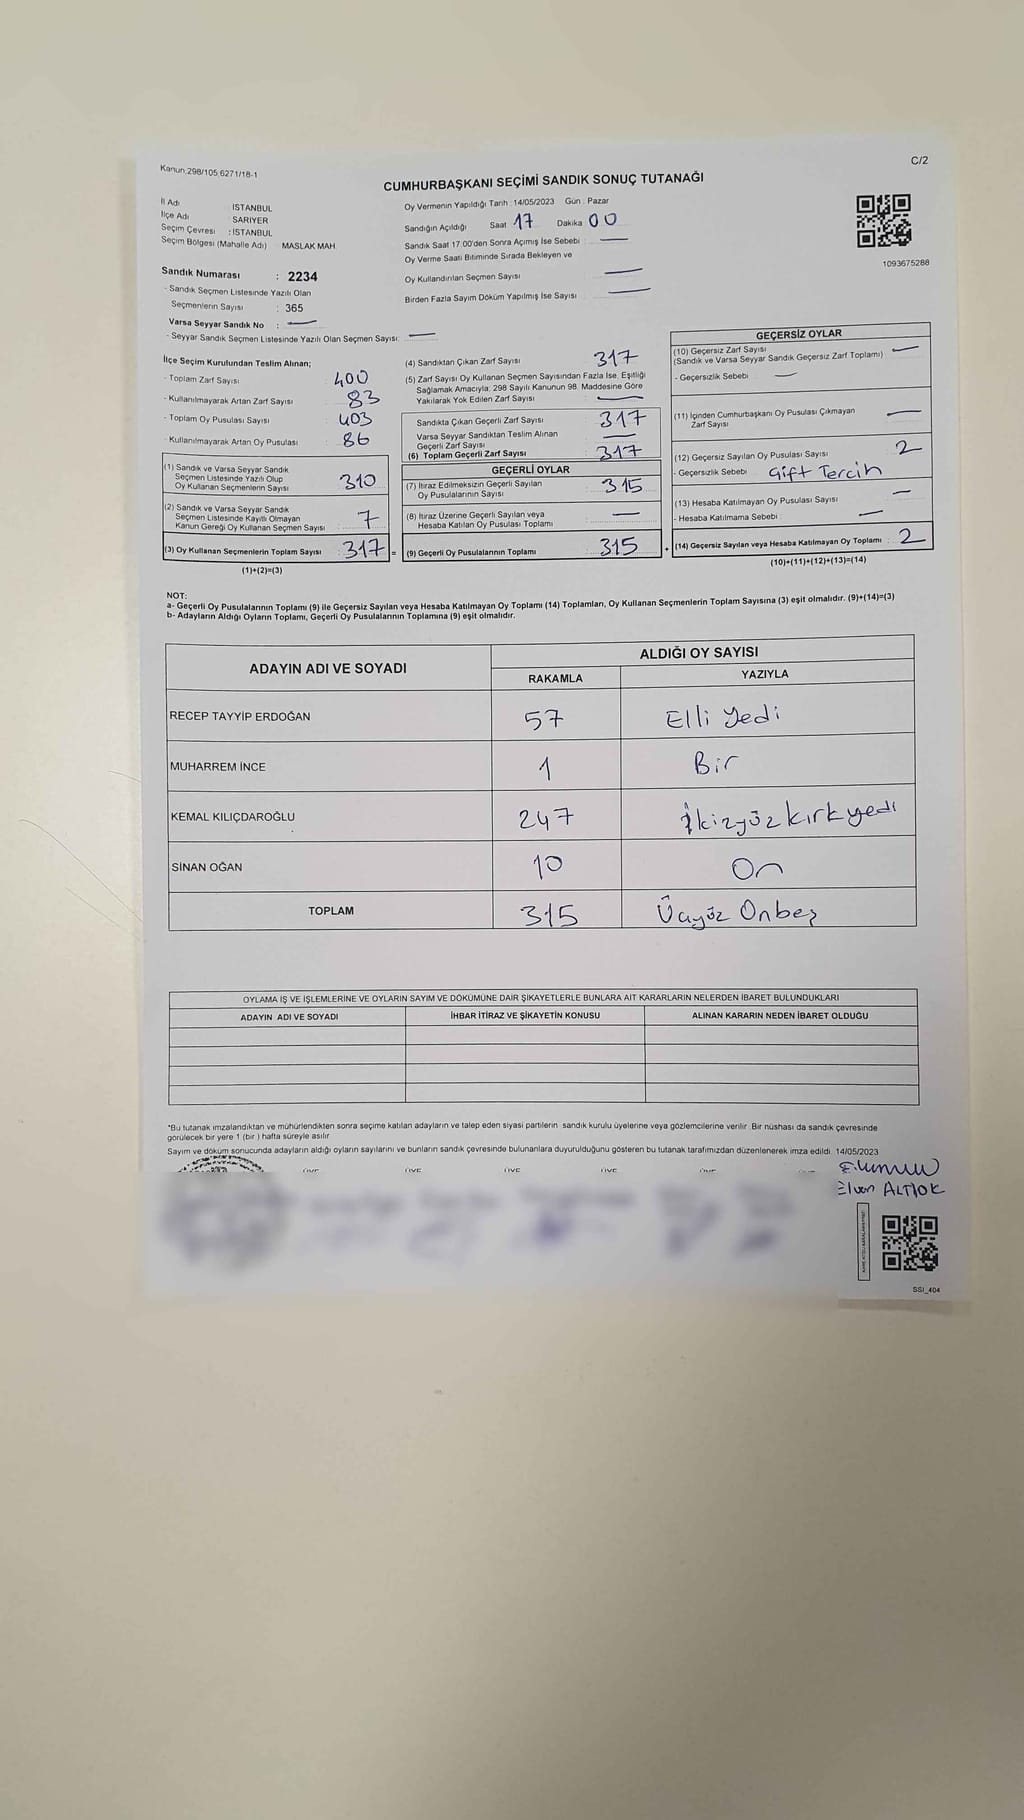 Kanun:298/105,6271/18-1
C/2
CUMHURBAŞKANI SEÇİMİ SANDIK SONUÇ TUTANAĞI
İl Adı İSTANBUL
İlçe Adı SARIYER
Seçim Çevresi : İSTANBUL
Seçim Bölgesi (Mahalle Adı) MASLAK MAH.
Sandık Numarası : 2234
- Sandık Seçmen Listesinde Yazılı Olan
Seçmenlerin Sayısı : 365
Varsa Seyyar Sandık No : —
- Seyyar Sandık Seçmen Listesinde Yazılı Olan Seçmen Sayısı: —
Oy Vermenin Yapıldığı Tarih : 14/05/2023 Gün : Pazar
Sandığın Açıldığı Saat 17 Dakika 00
Sandık Saat 17:00'den Sonra Açımış İse Sebebi —
Oy Verme Saati Bitiminde Sırada Bekleyen ve
Oy Kullandırılan Seçmen Sayısı —
Birden Fazla Sayım Döküm Yapılmış İse Sayısı —
1093675288
İlçe Seçim Kurulundan Teslim Alınan;
- Toplam Zarf Sayısı : 400
- Kullanılmayarak Artan Zarf Sayısı : 83
- Toplam Oy Pusulası Sayısı : 403
- Kullanılmayarak Artan Oy Pusulası : 86
(1) Sandık ve Varsa Seyyar Sandık
Seçmen Listesinde Yazılı Olup
Oy Kullanan Seçmenlerin Sayısı : 310
(2) Sandık ve Varsa Seyyar Sandık
Seçmen Listesinde Kayıtlı Olmayan
Kanun Gereği Oy Kullanan Seçmen Sayısı : 7
(3) Oy Kullanan Seçmenlerin Toplam Sayısı : 317 =
(1)+(2)=(3)
(4) Sandıktan Çıkan Zarf Sayısı 317
(5) Zarf Sayısı Oy Kullanan Seçmen Sayısından Fazla İse, Eşitliği
Sağlamak Amacıyla; 298 Sayılı Kanunun 98. Maddesine Göre
Yakılarak Yok Edilen Zarf Sayısı : —
Sandıkta Çıkan Geçerli Zarf Sayısı : 317
Varsa Seyyar Sandıktan Teslim Alınan
Geçerli Zarf Sayısı : —
(6) Toplam Geçerli Zarf Sayısı : 317
GEÇERLİ OYLAR
(7) İtiraz Edilmeksizin Geçerli Sayılan
Oy Pusulalarının Sayısı : 315
(8) İtiraz Üzerine Geçerli Sayılan veya
Hesaba Katılan Oy Pusulası Toplamı : —
(9) Geçerli Oy Pusulalarının Toplamı : 315 +
GEÇERSİZ OYLAR
(10) Geçersiz Zarf Sayısı
(Sandık ve Varsa Seyyar Sandık Geçersiz Zarf Toplamı) —
- Geçersizlik Sebebi : —
(11) İçinden Cumhurbaşkanı Oy Pusulası Çıkmayan
Zarf Sayısı —
(12) Geçersiz Sayılan Oy Pusulası Sayısı : 2
- Geçersizlik Sebebi : Çift Tercih
(13) Hesaba Katılmayan Oy Pusulası Sayısı : —
- Hesaba Katılmama Sebebi : —
(14) Geçersiz Sayılan veya Hesaba Katılmayan Oy Toplamı : 2
(10)+(11)+(12)+(13)=(14)
NOT:
a- Geçerli Oy Pusulalarının Toplamı (9) ile Geçersiz Sayılan veya Hesaba Katılmayan Oy Toplamı (14) Toplamları, Oy Kullanan Seçmenlerin Toplam Sayısına (3) eşit olmalıdır. (9)+(14)=(3)
b- Adayların Aldığı Oyların Toplamı, Geçerli Oy Pusulalarının Toplamına (9) eşit olmalıdır.
ADAYIN ADI VE SOYADI
ALDIĞI OY SAYISI
RAKAMLA YAZIYLA
RECEP TAYYİP ERDOĞAN 57 Elli Yedi
MUHARREM İNCE 1 Bir
KEMAL KILIÇDAROĞLU 247 İkizyüz kırk yedi
SİNAN OĞAN 10 On
TOPLAM 315 Üçyüz Onbeş
OYLAMA İŞ VE İŞLEMLERİNE VE OYLARIN SAYIM VE DÖKÜMÜNE DAİR ŞİKAYETLERLE BUNLARA AİT KARARLARIN NELERDEN İBARET BULUNDUKLARI
ADAYIN ADI VE SOYADI İHBAR İTİRAZ VE ŞİKAYETİN KONUSU ALINAN KARARIN NEDEN İBARET OLDUĞU
*Bu tutanak imzalandıktan ve mühürlendikten sonra seçime katılan adayların ve talep eden siyasi partilerin sandık kurulu üyelerine veya gözlemcilerine verilir. Bir nüshası da sandık çevresinde
görülecek bir yere 1 (bir ) hafta süreyle asılır.
Sayım ve döküm sonucunda adayların aldığı oyların sayılarını ve bunların sandık çevresinde bulunanlara duyurulduğunu gösteren bu tutanak tarafımızdan düzenlenerek imza edildi. 14/05/2023
ÜYE ÜYE ÜYE ÜYE ÜYE
Elvan ALTIOK
SSI_404